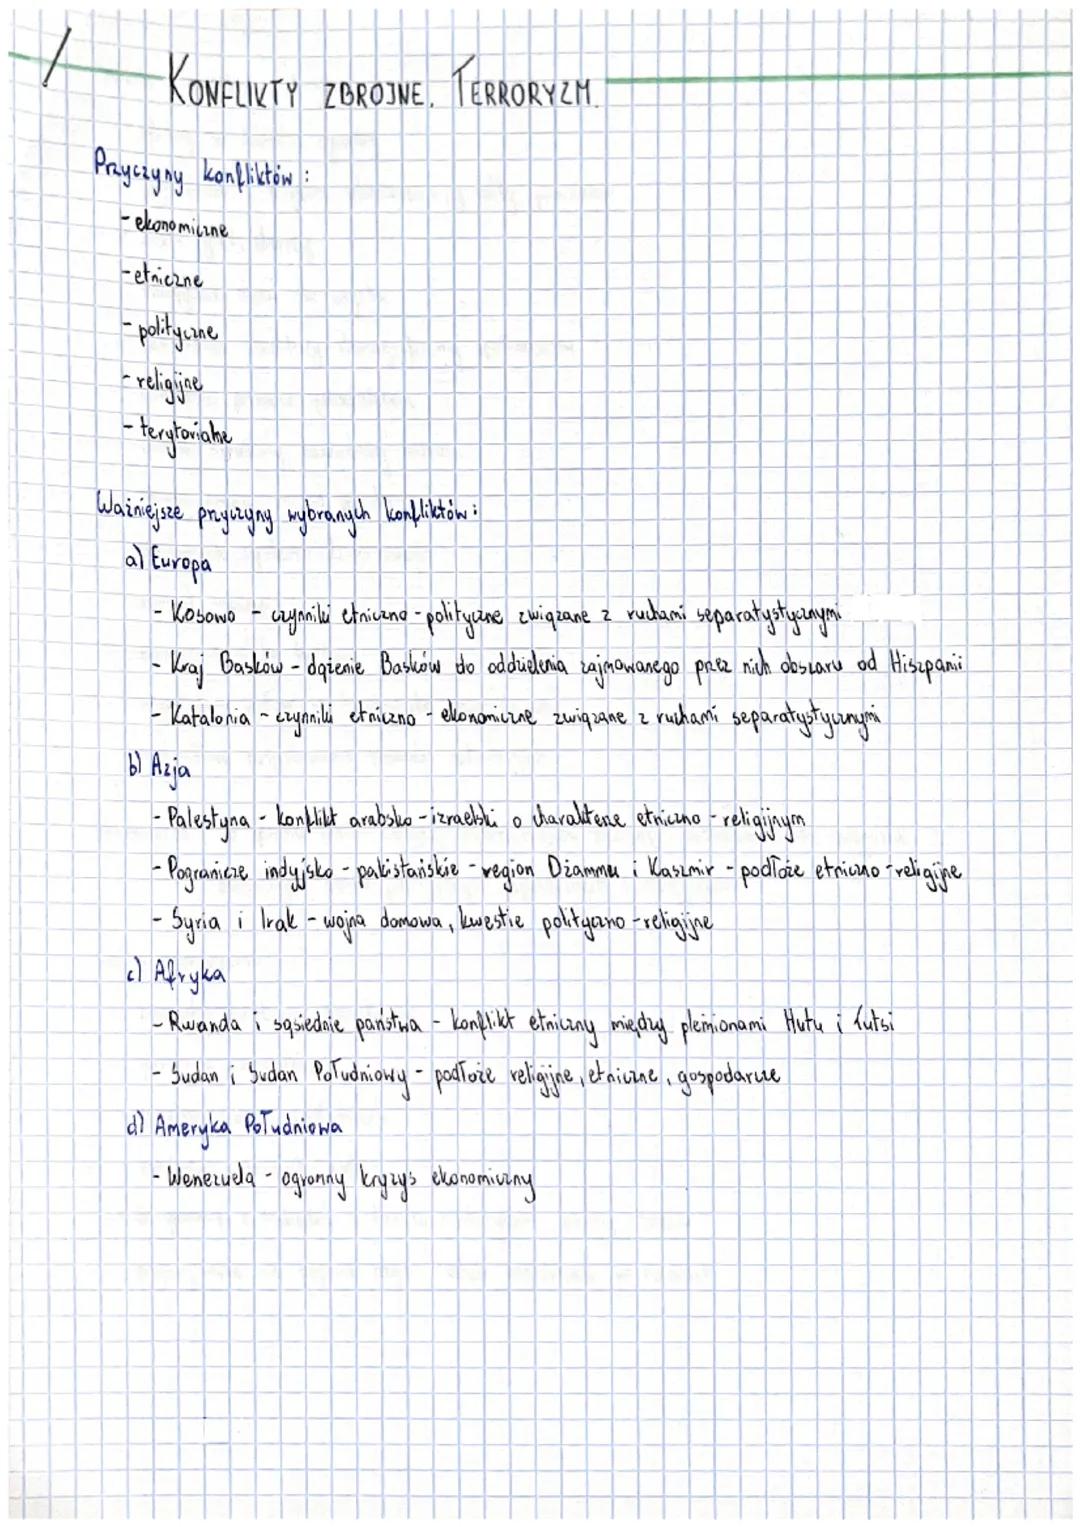 KONFLIKTY ZBROJNE. TERRORYZM.
Przyczyny konfliktów:
- ekonomiczne
- etniczne
- polityczne
- religijne
- terytorialne
Ważniejsze przyczyny wybranych konfliktów:
a) Europa
- Kosowo - czynniki etniczno - polityczne związane z ruchami separatystycznymi
- Kraj Basków - dążenie Basków do oddzielenia zajmowanego przez nich obszaru od Hiszpanii
- Katalonia - czynniki etniczno - ekonomiczne związane z ruchami separatystycznymi
b) Azja
- Palestyna - konflikt arabsko - izraelski o charakterze etniczno - religijnym
- Pogranicze indyjsko - pakistańskie - region Dżammu i Kaszmir - podłoże etniczno - religijne
- Syria i Irak - wojna domowa, kwestie polityczno - religijne
c) Afryka
- Rwanda i sąsiednie państwa - konflikt etniczny między plemionami Hutu i Tutsi
- Sudan i Sudan Południowy - podłoże religijne, etniczne, gospodarcze
d) Ameryka Południowa
- Wenezuela - ogromny kryzys ekonomiczny